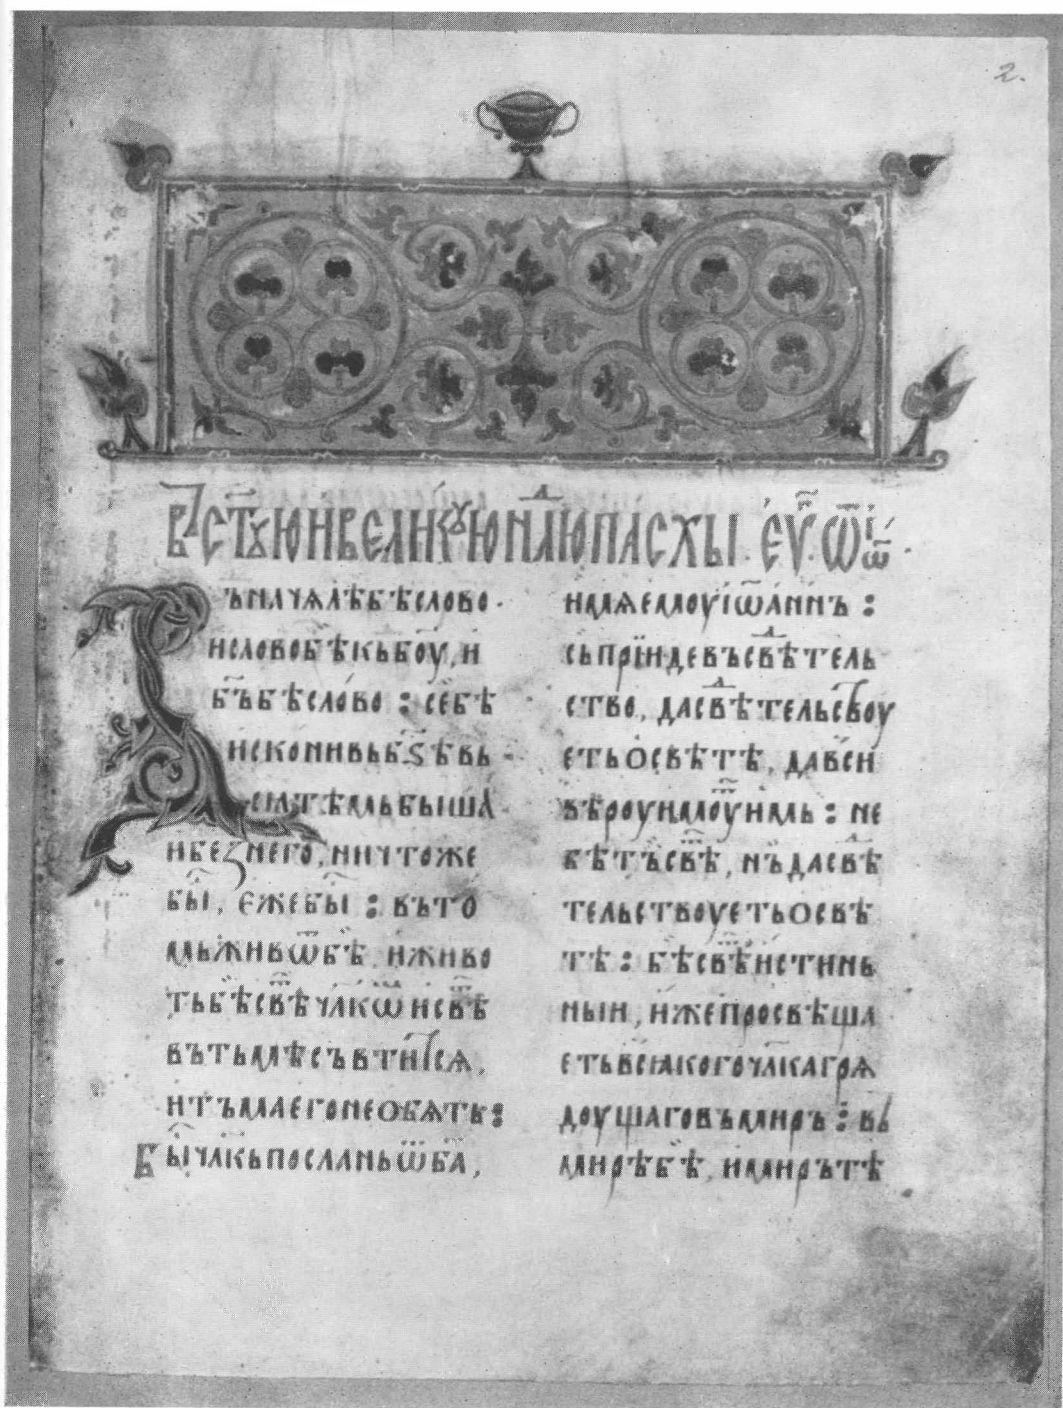 2.
Въ ст҃ꙋю и великꙋю нⷣлю пасхы. еѵ҃ ѿ іѡ҃.
ъначѧлѣ бѣ слово.
и слово бѣ къ боу, и
б҃ъ бѣ слово : се бѣ
искони въ б҃ѕѣ вь
сѣ тѣмь быша҆
и беꙁ него, ничтоже
бы҇, єже бы҇ : въ то
мь живѿ бѣ. и живо
ть бѣ свѣ҇ⷮ чл҃кѡⷨ и свѣ҇ⷮ
въ тьмѣ съвтит сѧ,
и тъма его не обѧтъ :
Бы҇ чл҃кь посланъ ѿ б҃а,
имѧ емоу іѡ҃аннъ :
сь прїиде въ свѣⷣтель
ство, да свѣⷣтельствоу
еть о свѣтѣ, да вси
вѣроу имоуⷮ имь : не
бѣ тъ свѣⷮ, нъ да свѣⷣ
тельствоуеть о свѣ
тѣ : бѣ свѣⷮ истинь
ныи, иже просвѣща
еть всꙗкого чл҃ка грѧ
доущаго въ миръ : вь
мирѣ бѣ, и миръ тѣ